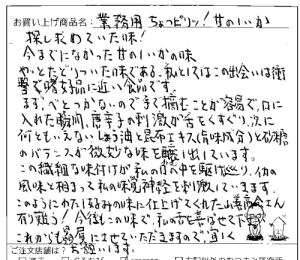 お買い上げ商品名:業務用ちょっピリッ!甘のいか
探し求めていた味!
今までになかった甘のいかの味
やっとたどりついた味である。私としてはこの出会いは衝
撃で嗜好品に近い食品です。
まず、べとつかないので手で摘むことが容易で、口に
入れた瞬間、唐辛子の刺激が舌をくすぐり、次に
何ともいえないしょう油と昆布エキス(旨味成分)と砂糖
のバランスが微妙な味を醸し出しています。
この繊細な味付けが私の口の中を駆け巡り、イカの
風味と相まって私の味覚神経を刺激していきます。
このようにわたし好みの味に仕上げてくれた
有り難う!今後もこの味で、私の舌を喜ばせて下さい。
これからも贔屓にさせていただきますので、宜しく
お願いします。
ご注文店舗は?